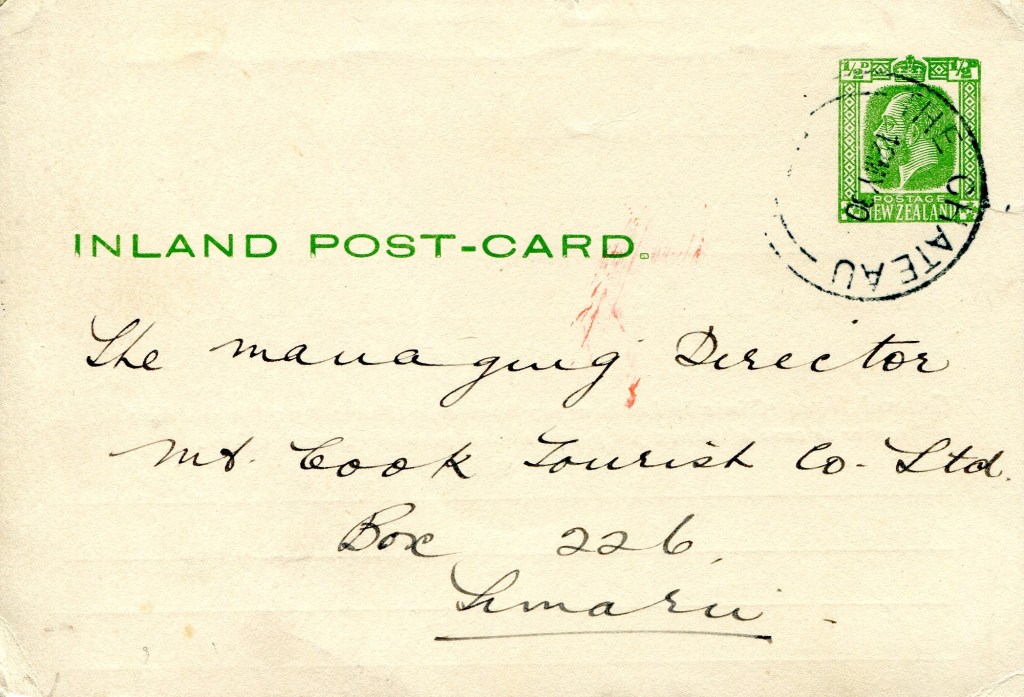 ½D ½D
POSTAGE
NEW ZEALAND
THE CHATEAU
INLAND POST-CARD.
The Managing Director
Mt. Cook Tourist Co. Ltd.
Box 226,
Timaru.